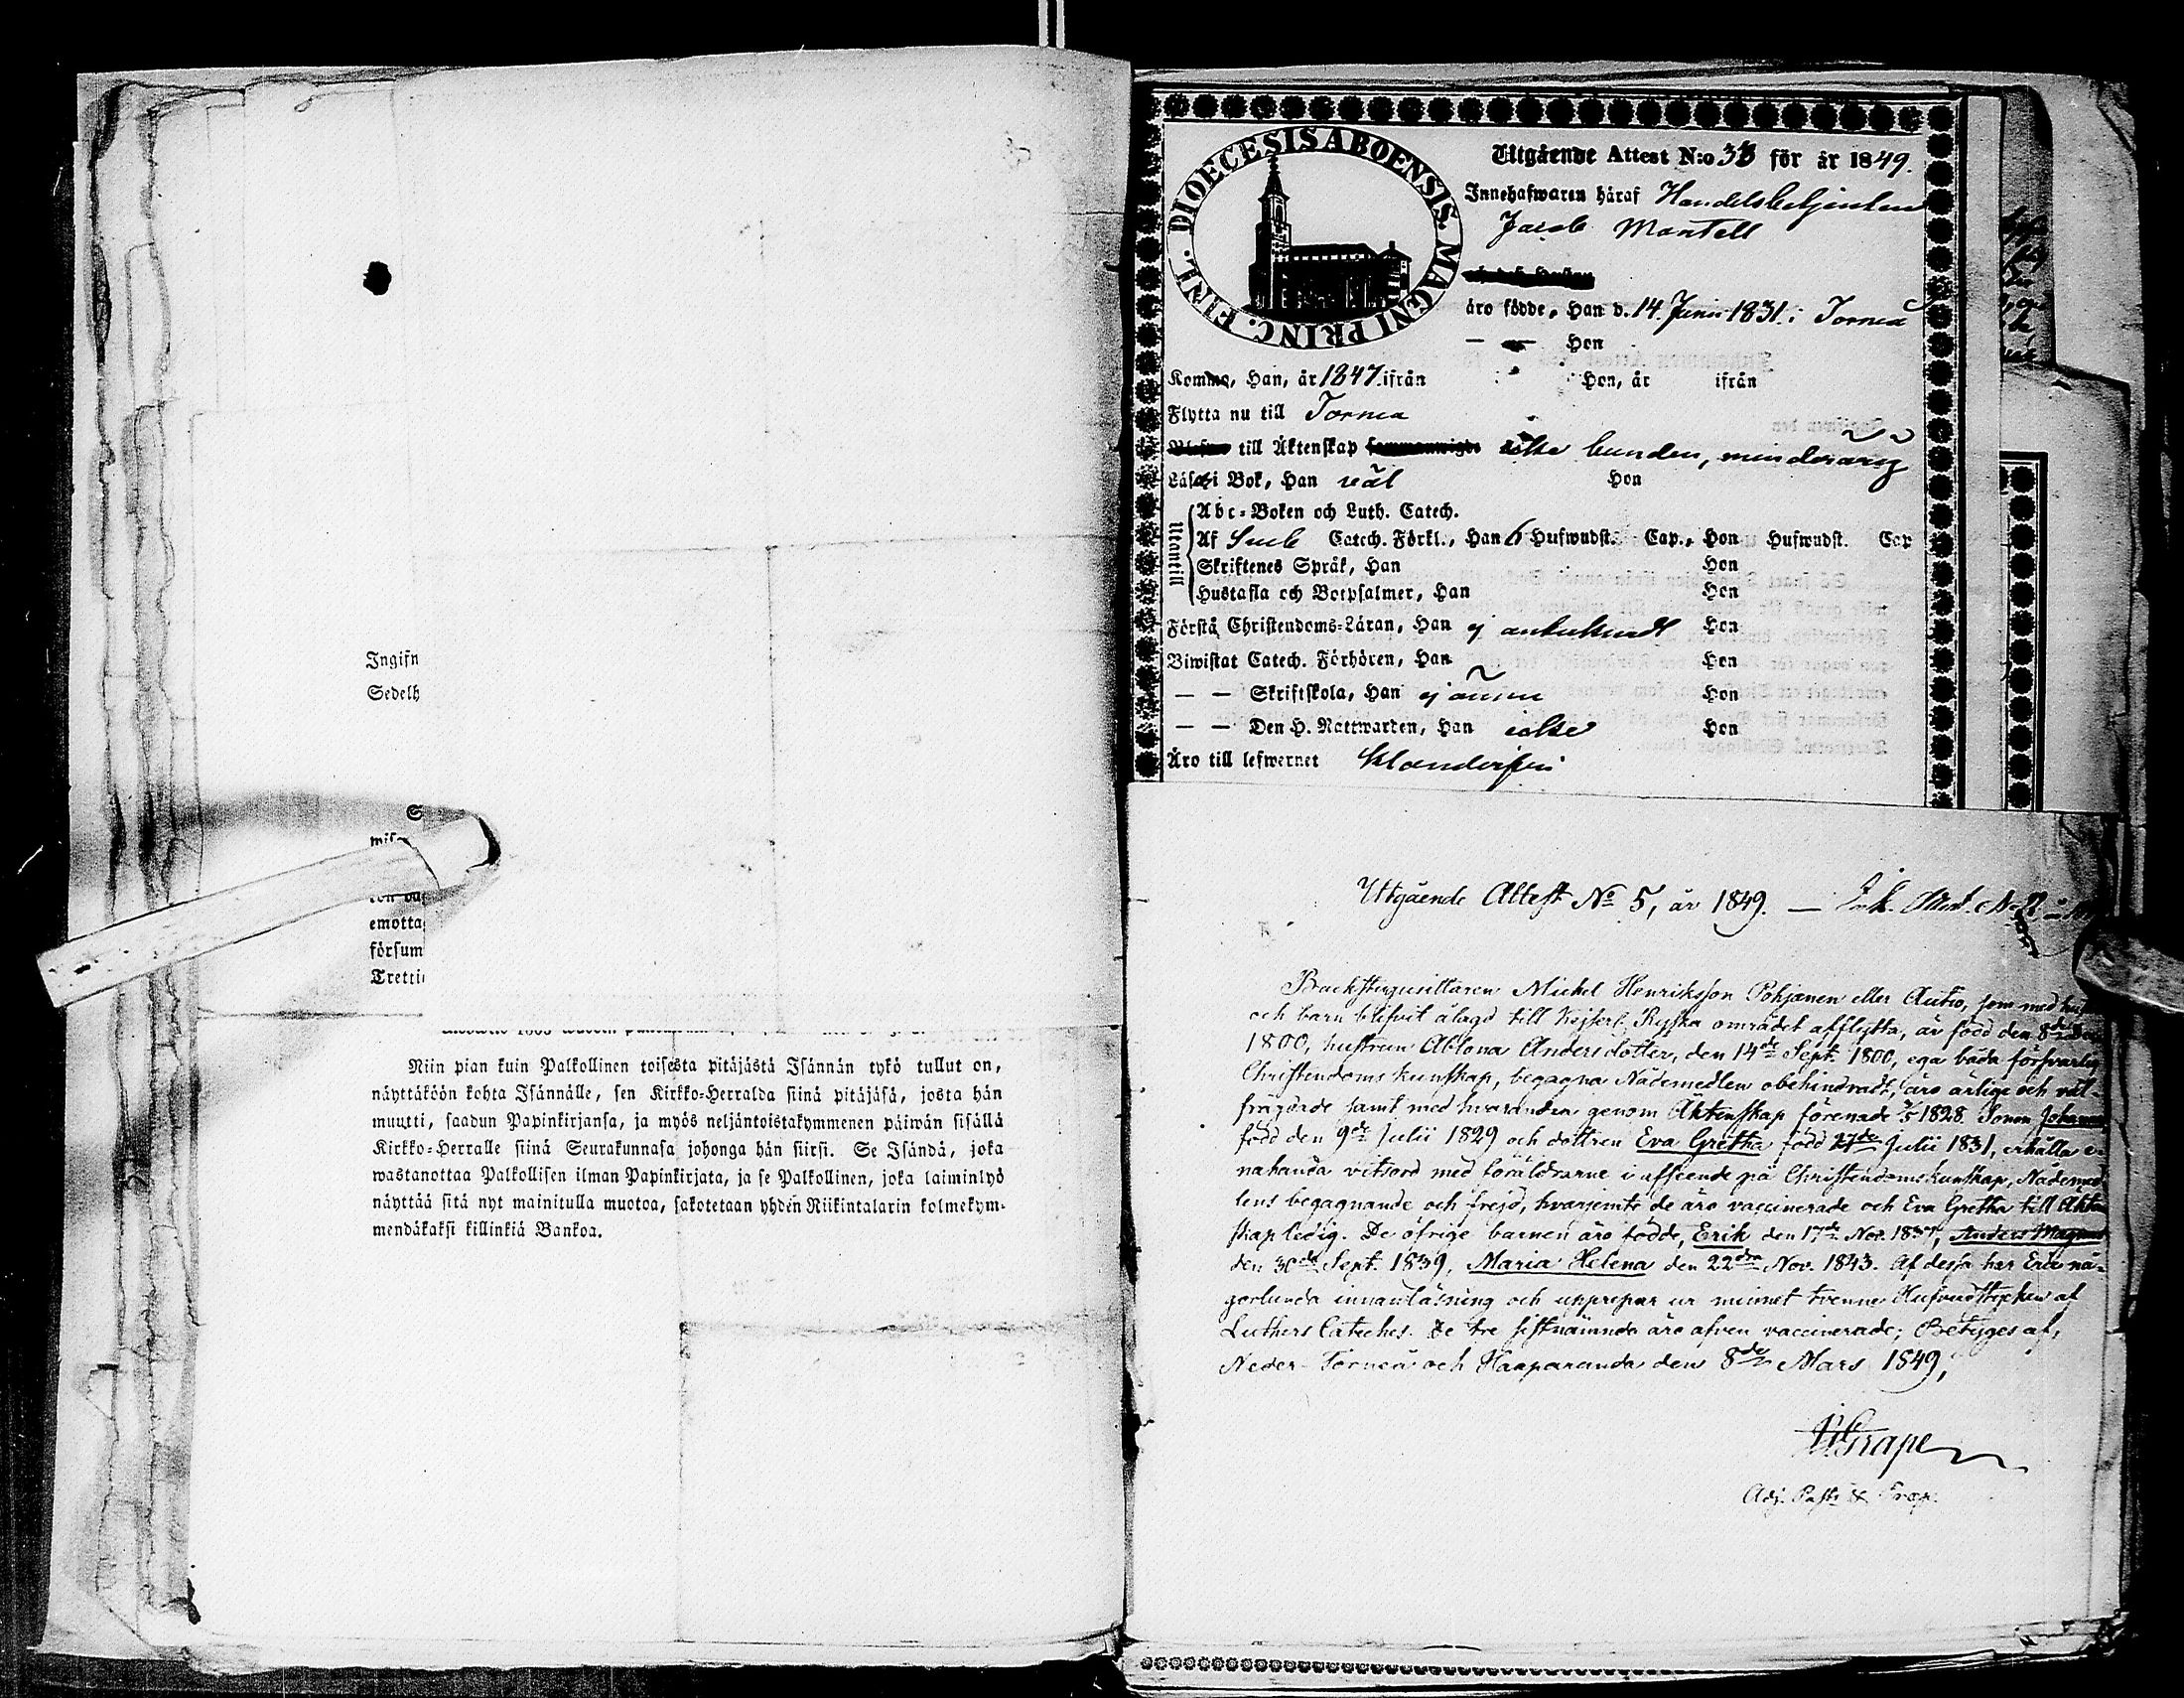 Ingifn
Sedelh
S
emotta
försum
Tretti
Niin pian kuin Palkollinen toisesta pitäjästä Isännän tykö tullut on,
näyttäköön kohta Isännälle, sen Kirkko-Herralda siinä pitäjäsä, josta hän
muutti, saadun Papinkirjansa, ja myös neljäntoistakymmenen päiwän sisällä
Kirkko-Herralle siinä Seurakunnasa johonga hän siirsi. Se Isändä, joka
wastanottaa Palkollisen ilman Papinkirjata, ja se Palkollinen, joka laiminlyö
näyttää sitä nyt mainitulla muotoa, sakotetaan yhden Riikintalarin kolmekym-
mendäkaksi killinkiä Bankoa.
DIOECESIS ABOENSIS. MAGNI PRINC. FINL.
Utgående Attest N:o för år 1849.
Innehafwaren häraf Handelsbetjenten
Jacob Mantell
äro födde, Han d. 14. Junii 1831. i Torneå
— — Hon
Komne, Han, år 1847. ifrån Hon, år ifrån
Flytta nu till Tornea
till Äktenskap icke bunden, minderårig
Läsa i Bok, Han väl Hon
Utantill
Abc-Boken och Luth. Catech.
Af Sueb Catech. Förkl., Han 6 Hufwudst. Cap., Hon Hufwudst. Cap
Skriftenes Språk, Han Hon
Hustafla och Botpsalmer, Han Hon
Förstå Christendoms-Läran, Han ej Hon
Biwistat Catech. Förhören, Han Hon
— — Skriftskola, Han ej ännu Hon
— — Den H. Nattwarden, Han icke Hon
Äro till lefwernet klanderfri
Utgående Attest No 5, år 1849. —
Backstugusittaren Michel Henriksson Pohjanen eller Autio, som med
och barn blifvit ålagd till Kejserl. Ryska området afflytta, är född den 8de
1800, hustrun Ablona Andersdotter, den 14de Sept. 1800, ega båda försvarlig
Christendoms kunskap, begagna Nådemedlen obehindradt, äro ärlige och väl-
frägdade samt med hvarandra genom Äktenskap förenade 1828. Sonen Johannes
född den 9de Julii 1829 och dottren Eva Gretha född 17de Julii 1831, erhålla e-
nahanda vitsord med föräldrarne i afseende på Christendomskunskap, Nådemed-
lens begagnande och frejd, hvarjemte de äro vaccinerade och Eva Gretha till Äkten
skap ledig. De öfrige barnen äro födde, Erik den 17de Nov. 1834, Anders Magnus
den 30de Sept. 1839, Maria Helena den 22dra Nov. 1843. Af dessa har Erik nå-
gorlunda innanläsning och upprepar ur minnet tvenne Hufvudstycken af
Luthers Cateches. De tre sistnämnda äro äfven vaccinerade; Betyges af,
Neder-Torneå och Haaparanda den 8de Mars 1849,
Grape
Adj. Past.